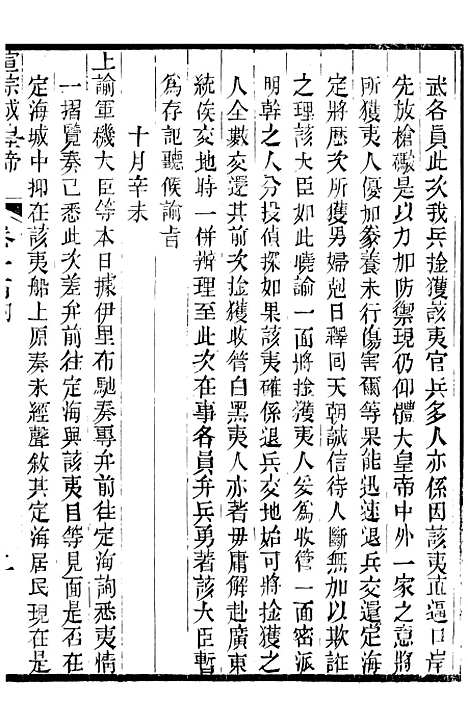 武各員此次我兵捦獲該夷官兵多人亦係因該夷直逼口岸
先放槍礮是以力加防禦現仍仰體大皇帝中外一家之意將
所獲夷人優加豢養未行傷害爾等果能迅速退兵交還定海
定將歷次所獲男婦剋日釋回天朝誠信待人斷無加以欺誑
之理該大臣如此曉諭一面將捦獲夷人妥為收管一面密派
明幹之人分投偵探如果該夷確係退兵交地始可將捦獲之
人全數交還其前次捦獲收管白黑夷人亦著毋庸解赴廣東
統俟交地時一併辦理至此次在事各員弁兵勇著該大臣暫
為存記聽候諭旨
十月辛未
上諭軍機大臣等本日據伊里布馳奏專弁前往定海詢悉夷情
一摺覽奏已悉此次差弁前往定海與該夷目等見面是否在
定海城中抑在該夷船上原奏未經聲敘其定海居民現在是
宣宗成皇帝